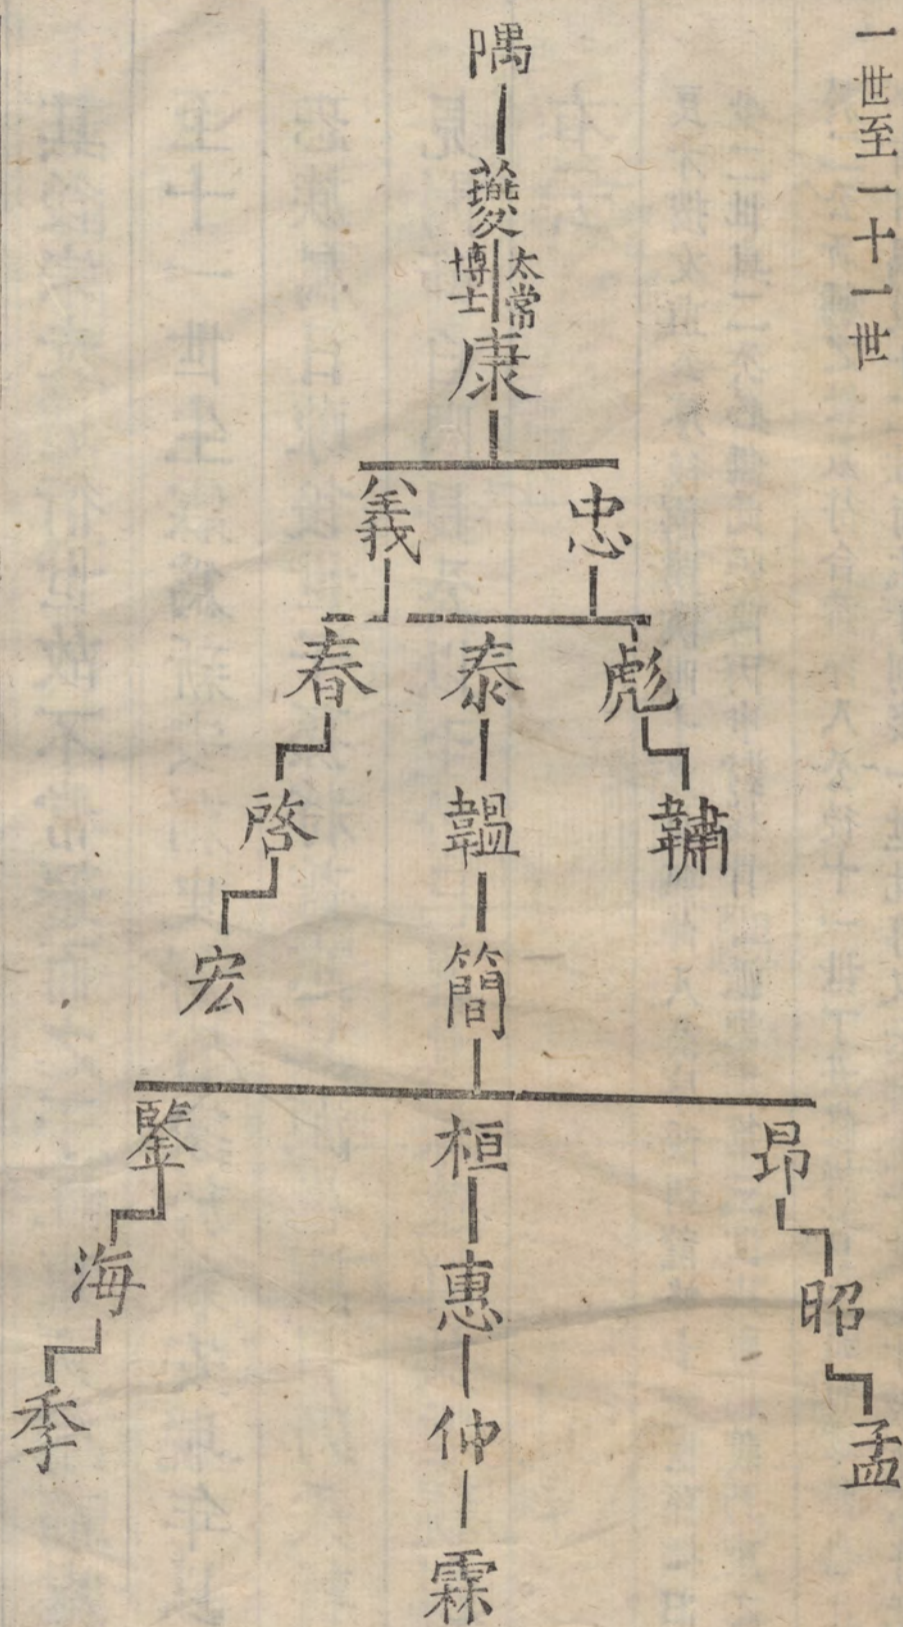 一世至一十一世
隅
夔
太常
博士
康
忠
義
彪
泰
春
韞
啓
簡
宏
昂
桓
鑒
昭
惠
海
孟
仲
季
霖